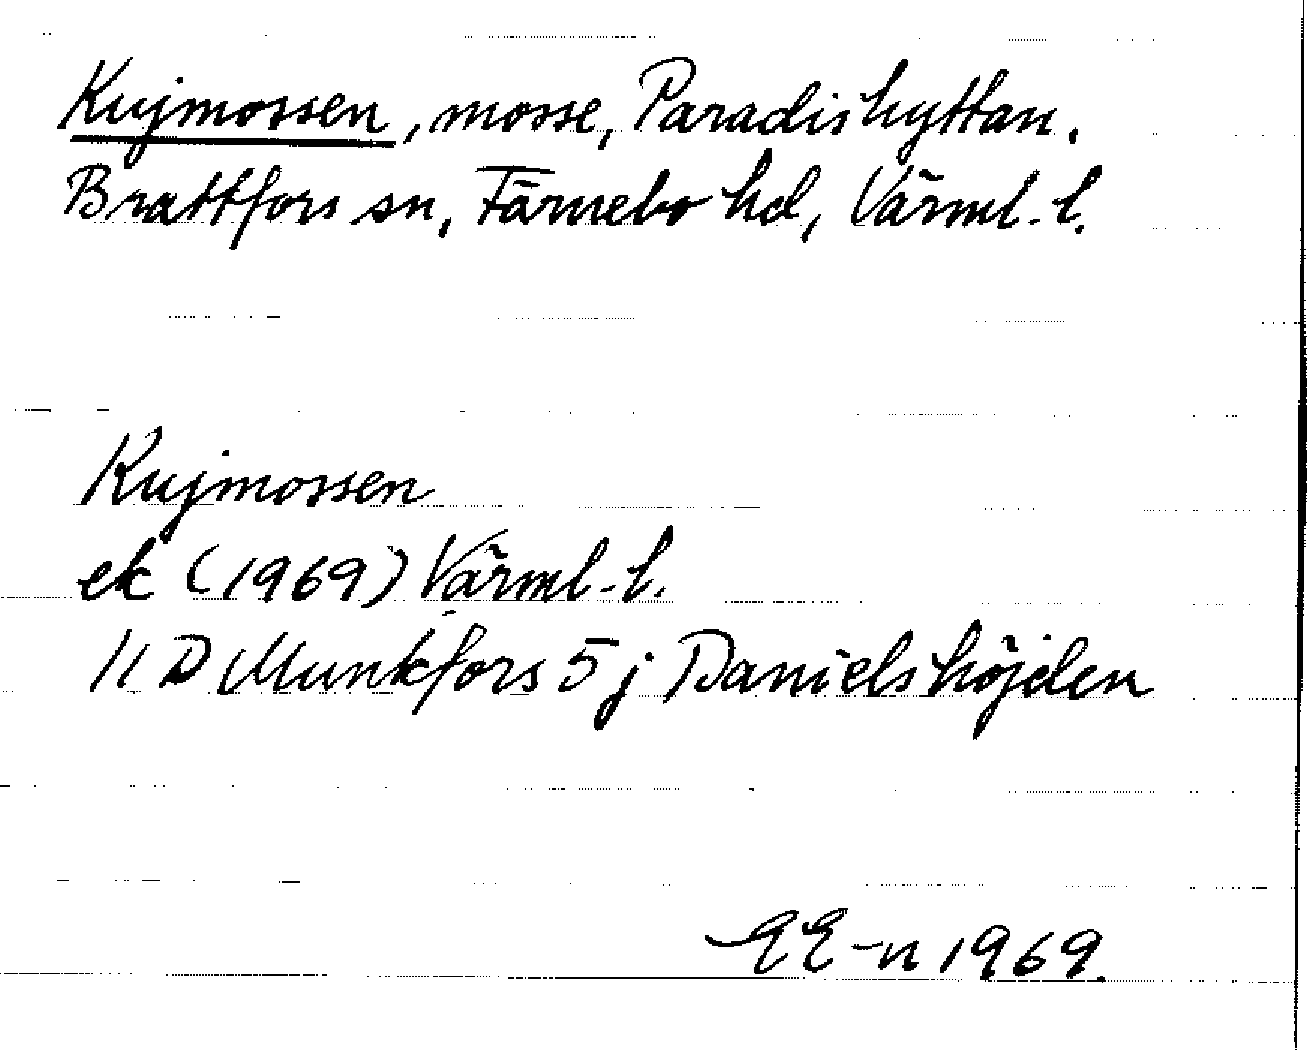 Kujmossen, mosse, Paradishyttan.
Brattfors sn, Färnebo hd, Värml. l.
Kujmossen
ek (1969) Värml. l.
11 D Munkfors 5 j Danielshöjden
EE-n 1969.